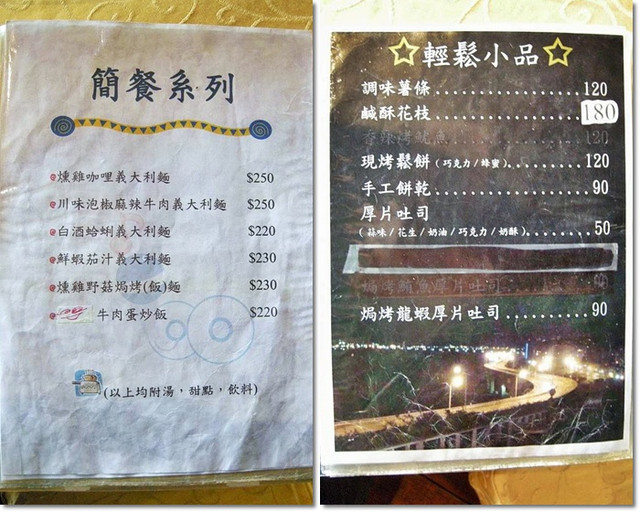 簡餐系列
燻雞咖哩義大利麵 $250
川味泡椒麻辣牛肉義大利麵 $250
白酒蛤蜊義大利麵 $220
鮮蝦茄汁義大利麵 $230
燻雞野菇焗烤(飯)麵 $230
牛肉蛋炒飯 $220
(以上均附湯，甜點，飲料)
☆輕鬆小品☆
調味薯條....................120
鹹酥花枝....................180
香辣烤魷魚....................120
現烤鬆餅(巧克力/蜂蜜)............120
手工餅乾....................90
厚片吐司
(蒜味/花生/奶油/巧克力/奶酥)..........50
焗烤鮪魚厚片吐司..........90
焗烤龍蝦厚片吐司..........90